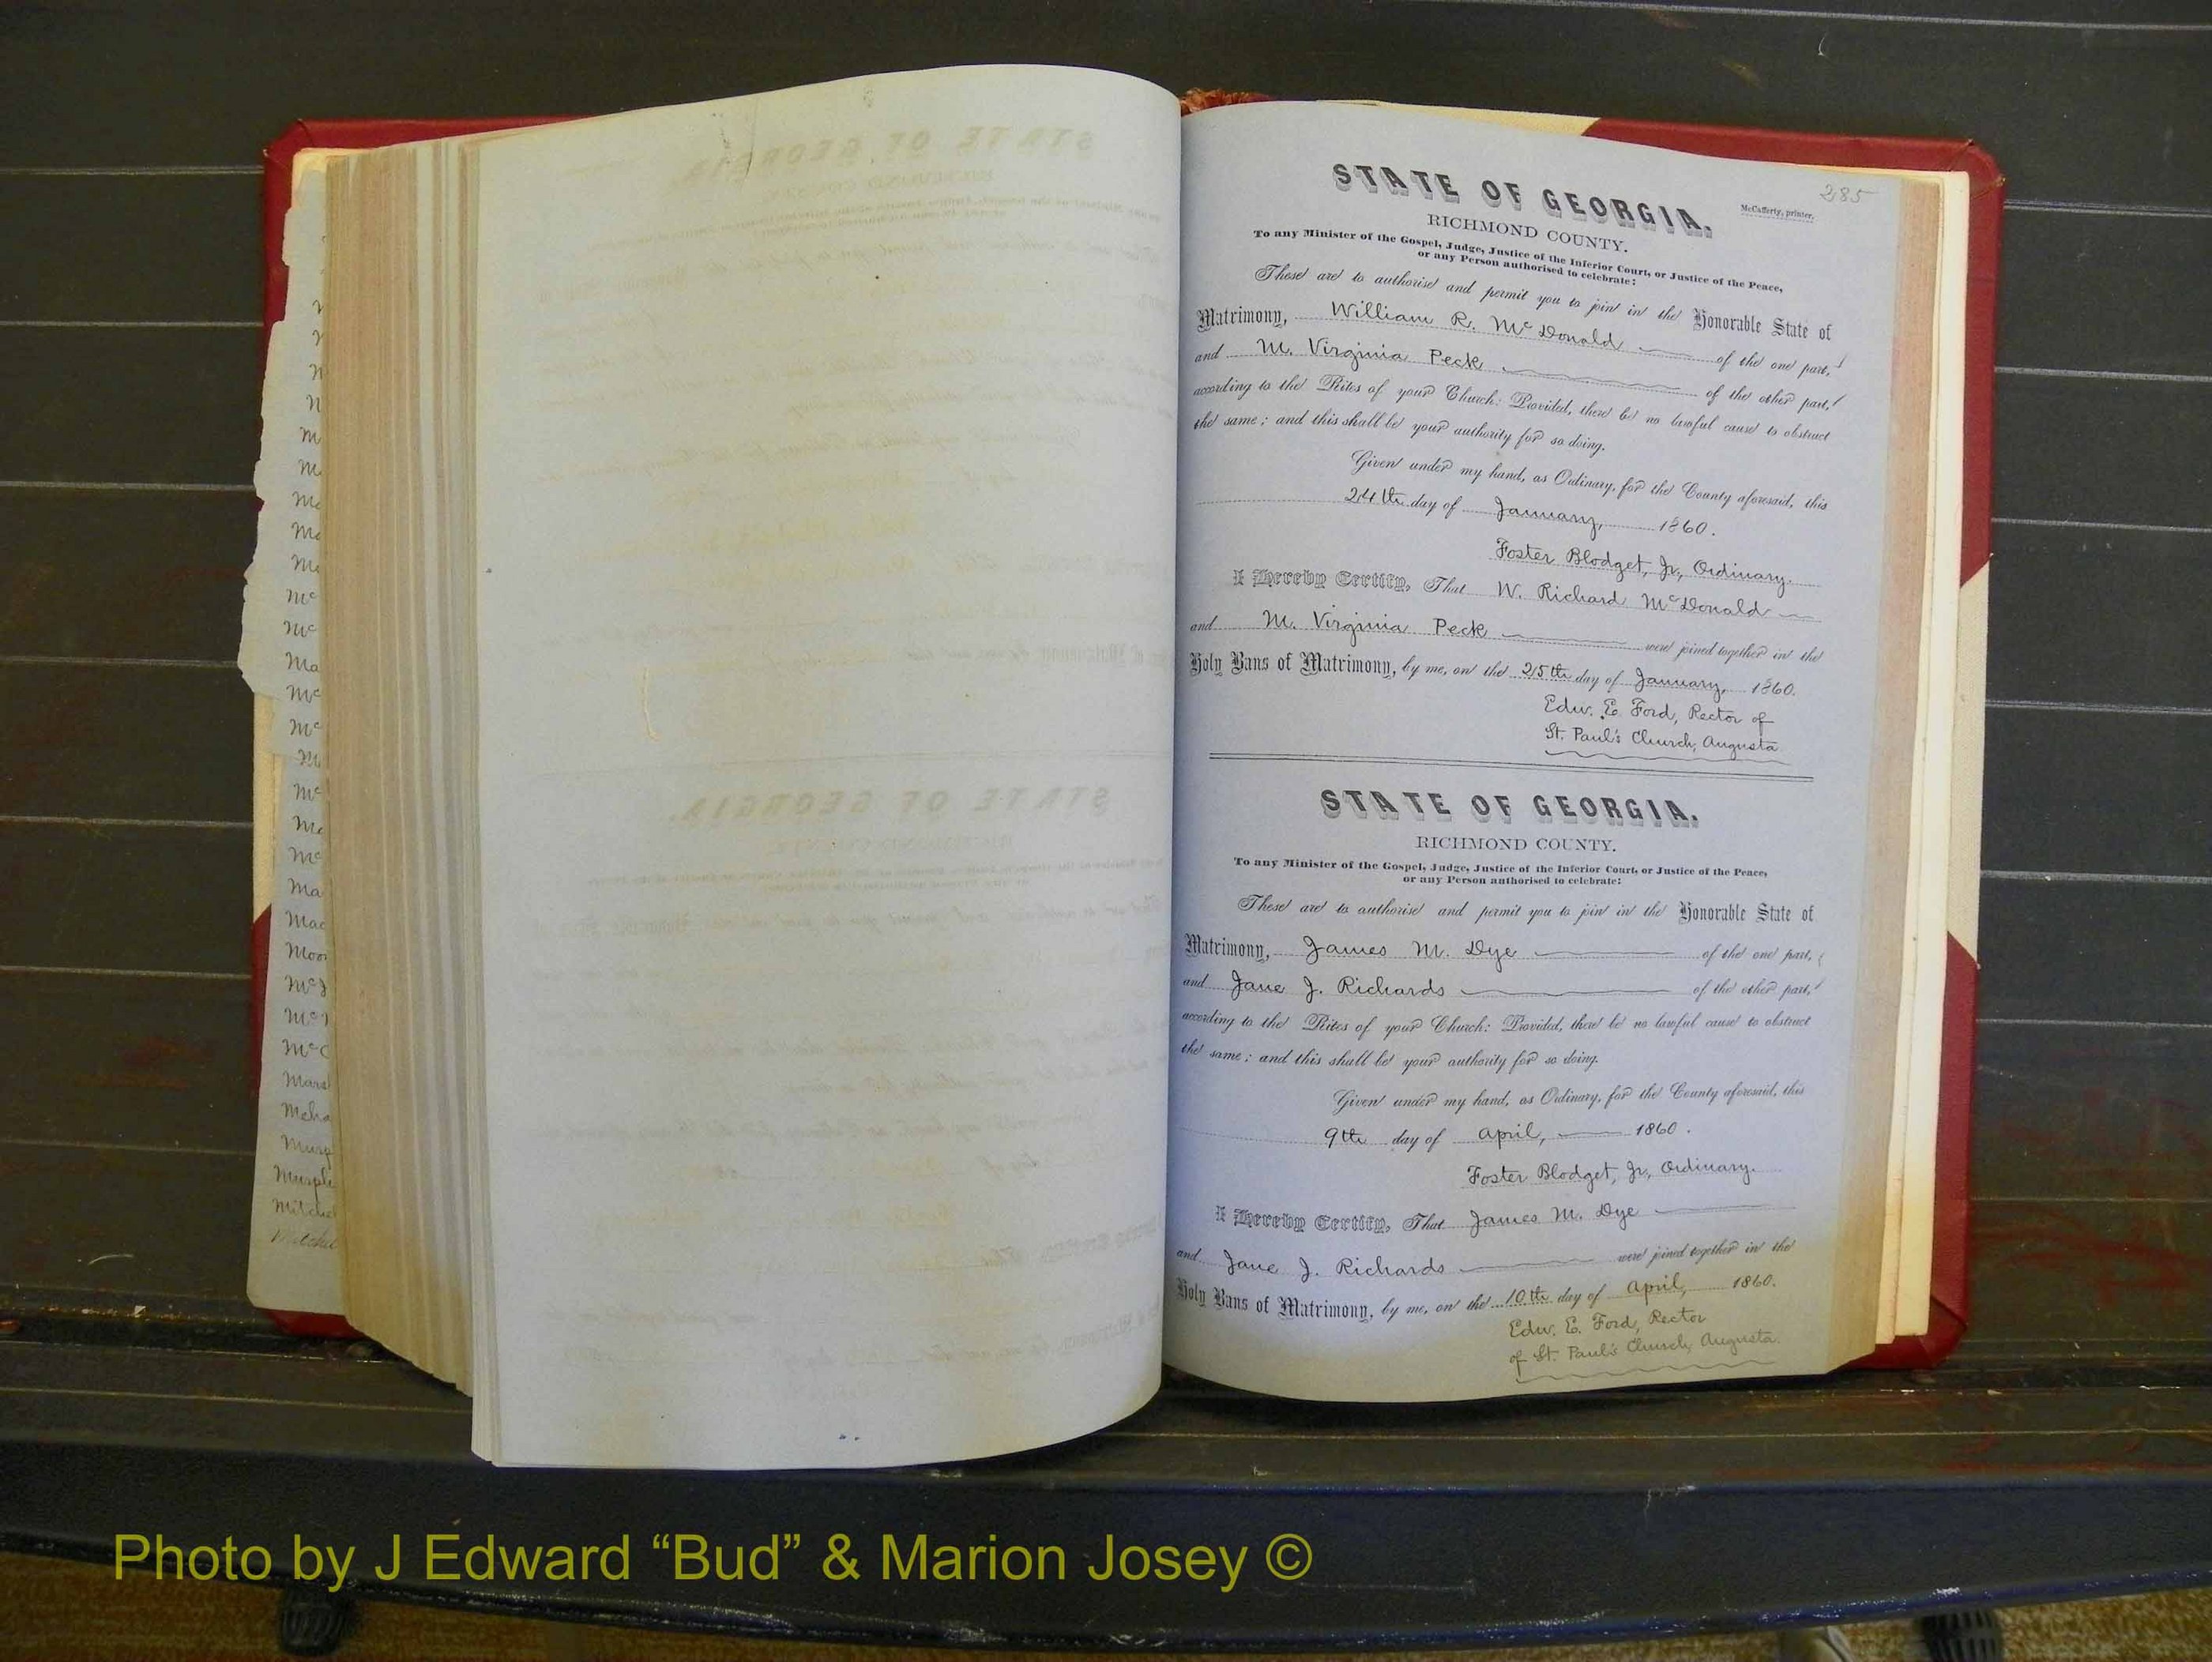 STATE OF GEORGIA.
McCafferty, printer.
285
RICHMOND COUNTY.
To any Minister of the Gospel, Judge, Justice of the Inferior Court, or Justice of the Peace,
or any Person authorised to celebrate:
These are to authorise and permit you to join in the Honorable State of
Matrimony, William R. McDonald of the one part,
and M. Virginia Peck of the other part,
according to the Rites of your Church: Provided, there be no lawful cause to obstruct
the same; and this shall be your authority for so doing.
Given under my hand, as Ordinary, for the County aforesaid, this
24th day of January, 1860.
Foster Blodget, Jr., Ordinary.
I Hereby Certify, That W. Richard McDonald
and M. Virginia Peck were joined together in the
Holy Bans of Matrimony, by me, on the 25th day of January, 1860.
Edw. E. Ford, Rector of
St. Paul's Church, Augusta
STATE OF GEORGIA.
RICHMOND COUNTY.
To any Minister of the Gospel, Judge, Justice of the Inferior Court, or Justice of the Peace,
or any Person authorised to celebrate:
These are to authorise and permit you to join in the Honorable State of
Matrimony, James M. Dye of the one part,
and Jane J. Richards of the other part,
according to the Rites of your Church: Provided, there be no lawful cause to obstruct
the same; and this shall be your authority for so doing.
Given under my hand, as Ordinary, for the County aforesaid, this
9th day of April, 1860.
Foster Blodget, Jr., Ordinary.
I Hereby Certify, That James M. Dye
and Jane J. Richards were joined together in the
Holy Bans of Matrimony, by me, on the 10th day of April, 1860.
Edw. E. Ford, Rector
of St. Paul's Church, Augusta.
Photo by J Edward “Bud” & Marion Josey ©